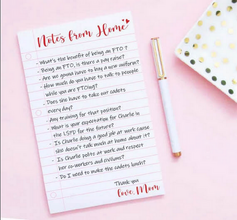 Notes from Home
- What's the benefit of being an FTO ?
- Being an FTO, is there a pay raise?
- Are we gonna have to buy a new uniform?
- How much do you have to talk to people
while you are FTOing?
- Does she have to take our cadets
every day?
- Any training for that position?
- What is your expectation for Charlie in
the LSTD for the future?
- Is Charlie doing a good job at work cause
she doesn't talk inside at home about it?
- Is Charlie polite at work and respect
her co-workers and civilians?
- Do I need to make the cadets lunch?
Thank you
Love, Mom